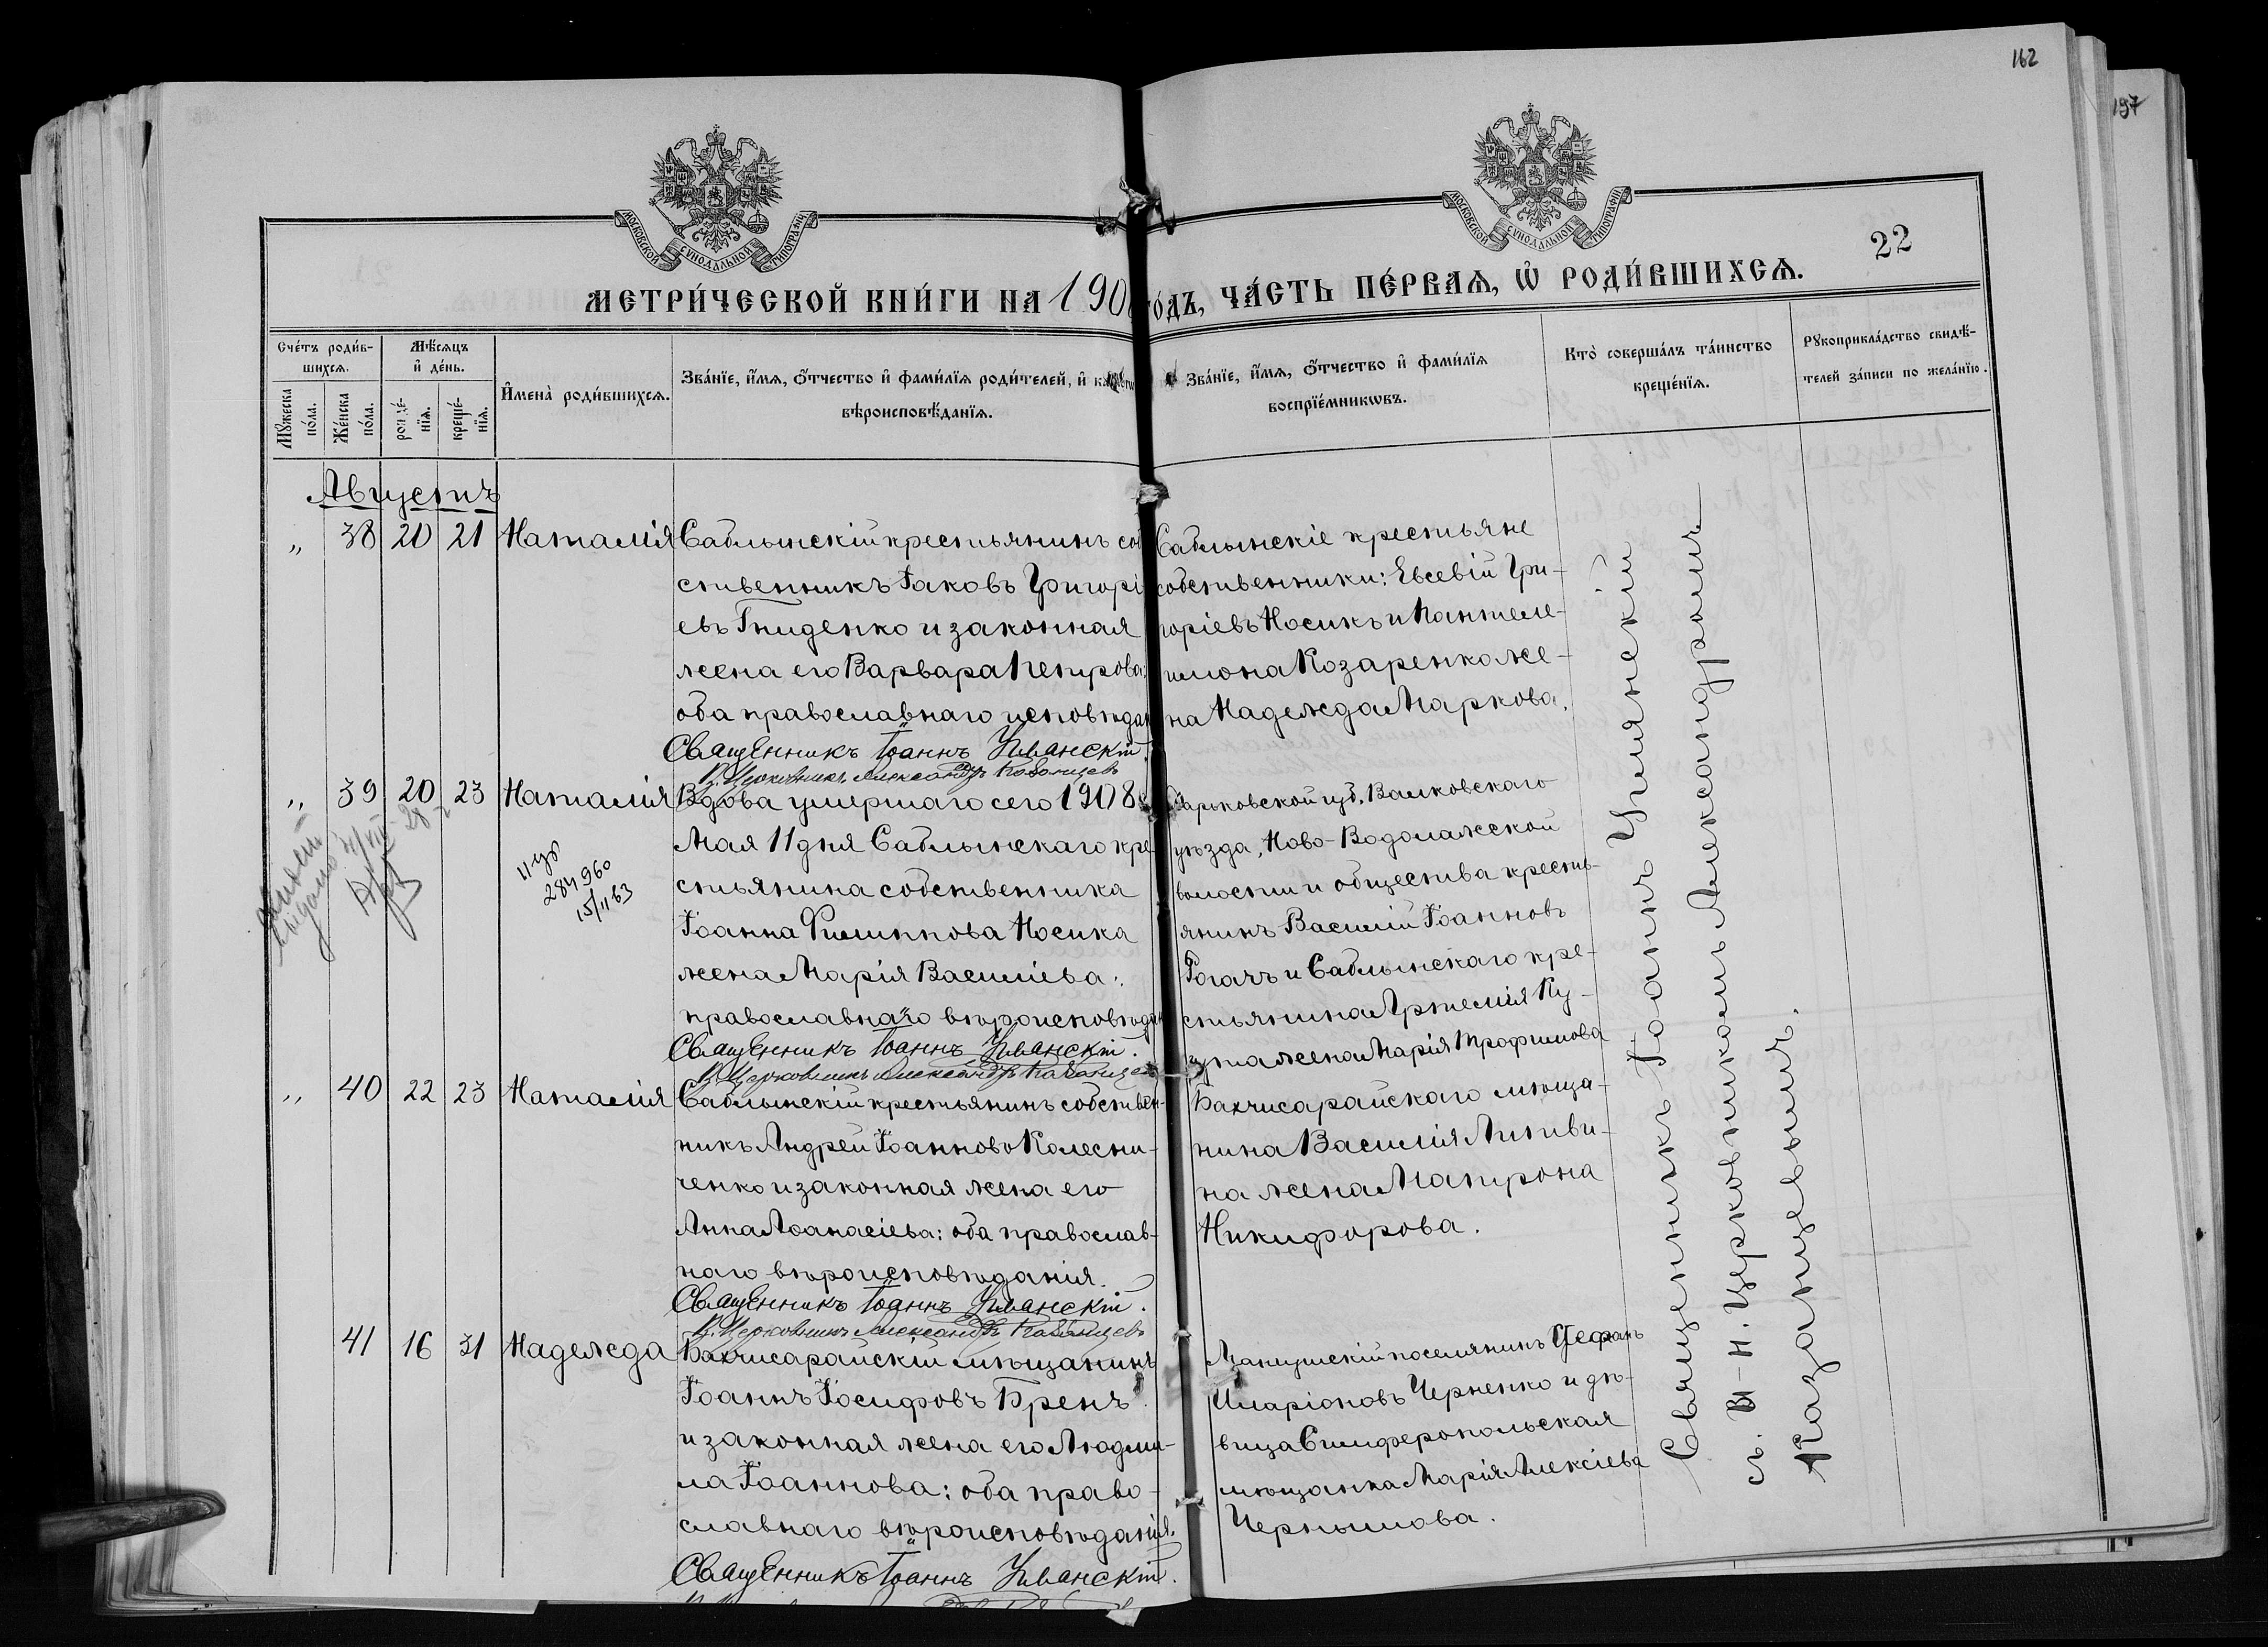 162
197
МОСКОВСКОЙ СѴНОДАЛЬНОЙ ТИПОГРАФІИ
МОСКОВСКОЙ СѴНОДАЛЬНОЙ ТИПОГРАФІИ
22
МЕТРИ́ЧЕСКОЙ КНИ́ГИ НА 190
го́дъ, ЧА́СТЬ ПЕ́РВАѦ, Ѡ҆ РОДИ́ВШИХСѦ.
Сче́тъ роди́в-
шихсѧ.
Мꙋжеска по́ла.
Же́нска по́ла.
Мѣ́сѧцъ
и҆ де́нь.
рожде́-
нїѧ.
креще́-
нїѧ.
И҆мена̀ роди́вшихсѧ.
Зва́нїе, и҆́мѧ, ѻ҆́тчество и҆ фами́лїѧ роди́телей, и҆
вѣроисповѣ́данїѧ.
Зва́нїе, и҆́мѧ, ѻ҆́тчество и҆ фами́лїѧ
воспрїе́мникѡвъ.
Кто̀ соверша́лъ та́инство
креще́нїѧ.
Рꙋкоприкла́дство свидѣ́-
телей за́писи по жела́нїю.
Августъ
„ 38 20 21 Наталія
Саблынскій крестьянинъ соб
ственникъ Іаковъ Григорі
евъ Гниденко и законная
жена его Варвара Петрова:
оба православнаго исповѣдан
Священникъ Іоаннъ Уманскій.
В. Церковникъ Александръ Казанцевъ
Саблынскіе крестьяне
собственники: Евсевій Гри-
горіевъ Носикъ и Пантеле-
имона Козаренко же-
на Надежда Маркова.
„ 39 20 23 Наталія
11 цв
284960
15/II 63
Вдова умершаго сего 1908
Мая 11 дня Саблынскаго кре
стьянина собственника
Іоанна Филиппова Носика
жена Марія Василіева:
православнаго вѣроисповѣдан
Священникъ Іоаннъ Уманскій.
В. Церковникъ Александръ Казанцевъ
Харьковской губ. Валковскаго
уѣзда, Ново-Водолажской
волости и общества кресть-
янинъ Василій Іоанновъ
Рогачъ и Саблынскаго кре-
стьянина Артемія Ку-
зуна жена Марія Трофимова
„ 40 22 23 Наталія
Саблынскій крестьянинъ собствен-
никъ Андрей Іоанновъ Колесни-
ченко и законная жена его
Анна Аѳанасіева: оба православ-
наго вѣроисповѣданія.
Священникъ Іоаннъ Уманскій.
В. Церковникъ Александръ Казанцевъ
Бахчисарайскаго мѣща-
нина Василія Литви-
на жена Матрона
Никифорова.
41 16 31 Надежда
Бахчисарайскій мѣщанинъ
Іоаннъ Іосифовъ Бренъ
и законная жена его Людми-
ла Іоаннова: оба право-
славнаго вѣроисповѣданія.
Священникъ Іоаннъ Уманскій.
Мангушскій поселянинъ Стефанъ
Иларіоновъ Черненко и дѣ-
вица Симферопольская
мѣщанка Марія Алексіева
Чернышова.
Священникъ Іоаннъ Уманскій
съ В-Н. Церковникомъ Александромъ
Казанцевымъ.